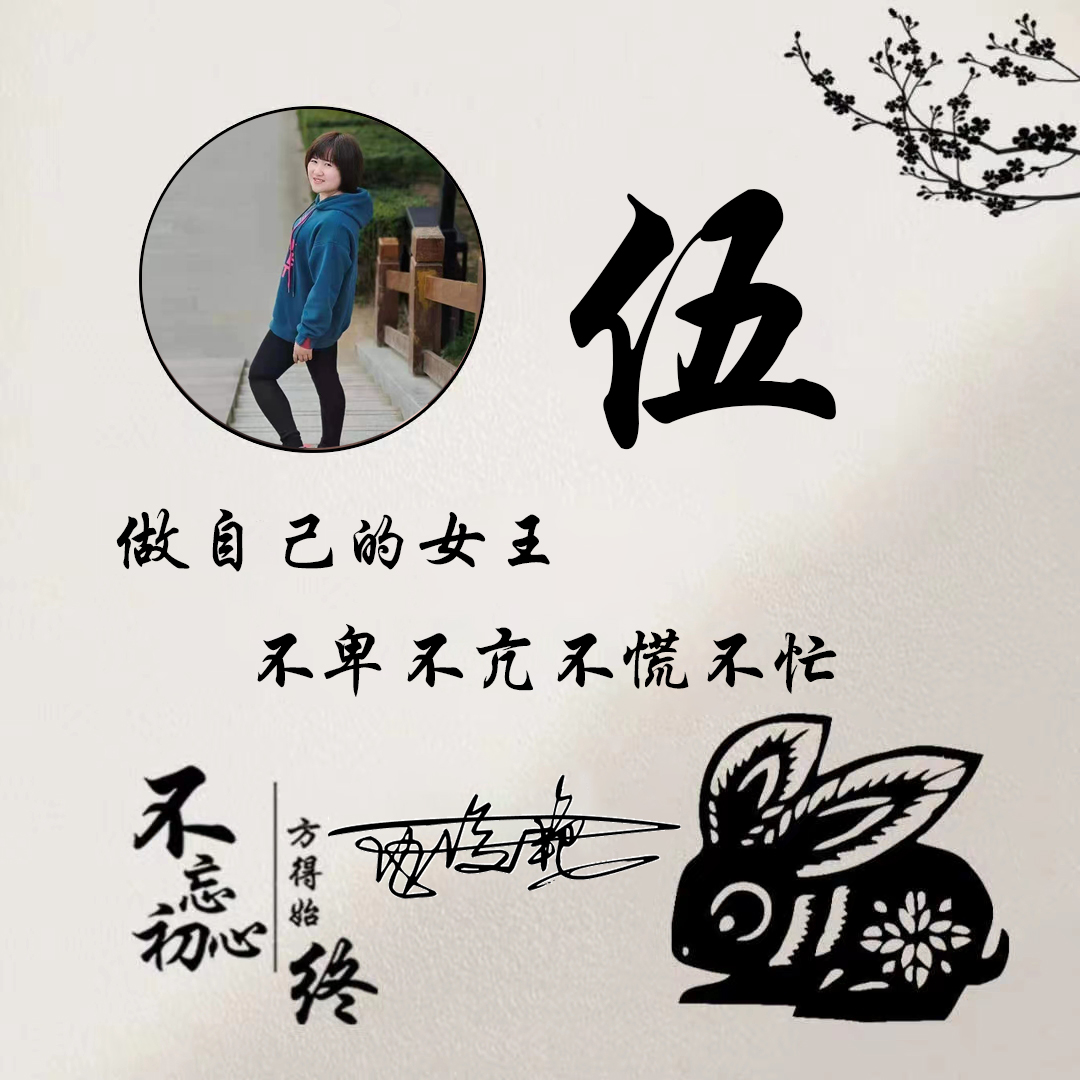 伍
做自己的女王
不卑不亢不慌不忙
不忘初心
方得始终